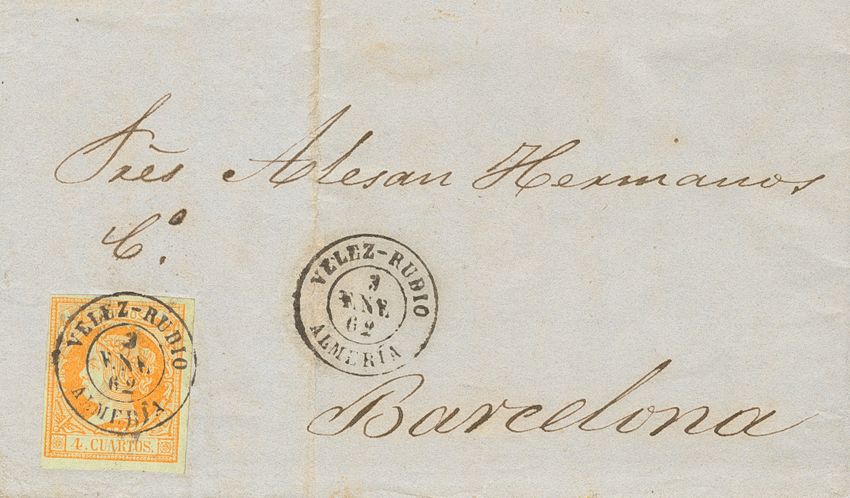 Sres Alesan Hermanos
Cº.
VELEZ-RUBIO
3
ENE
62
ALMERÍA
VELEZ-RUBIO
3
ENE
62
ALMERÍA
4. CUARTOS.
Barcelona